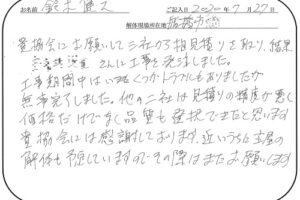 お名前 鈴木健夫 ご記入日 2020年7月27日
解体現場所在地 船橋市
貴協会にお願いして三社から相見積りを取り、結果
さんに工事を発注しました。
工事期間中はいくつかトラブルもありましたが
無事完了しました。他の二社は見積りの精度が悪く
価格だけでなく品質も選択できたと思います
貴協会には感謝しております。近いうちに古屋の
解体も予定していますのでその際はまたお願いします